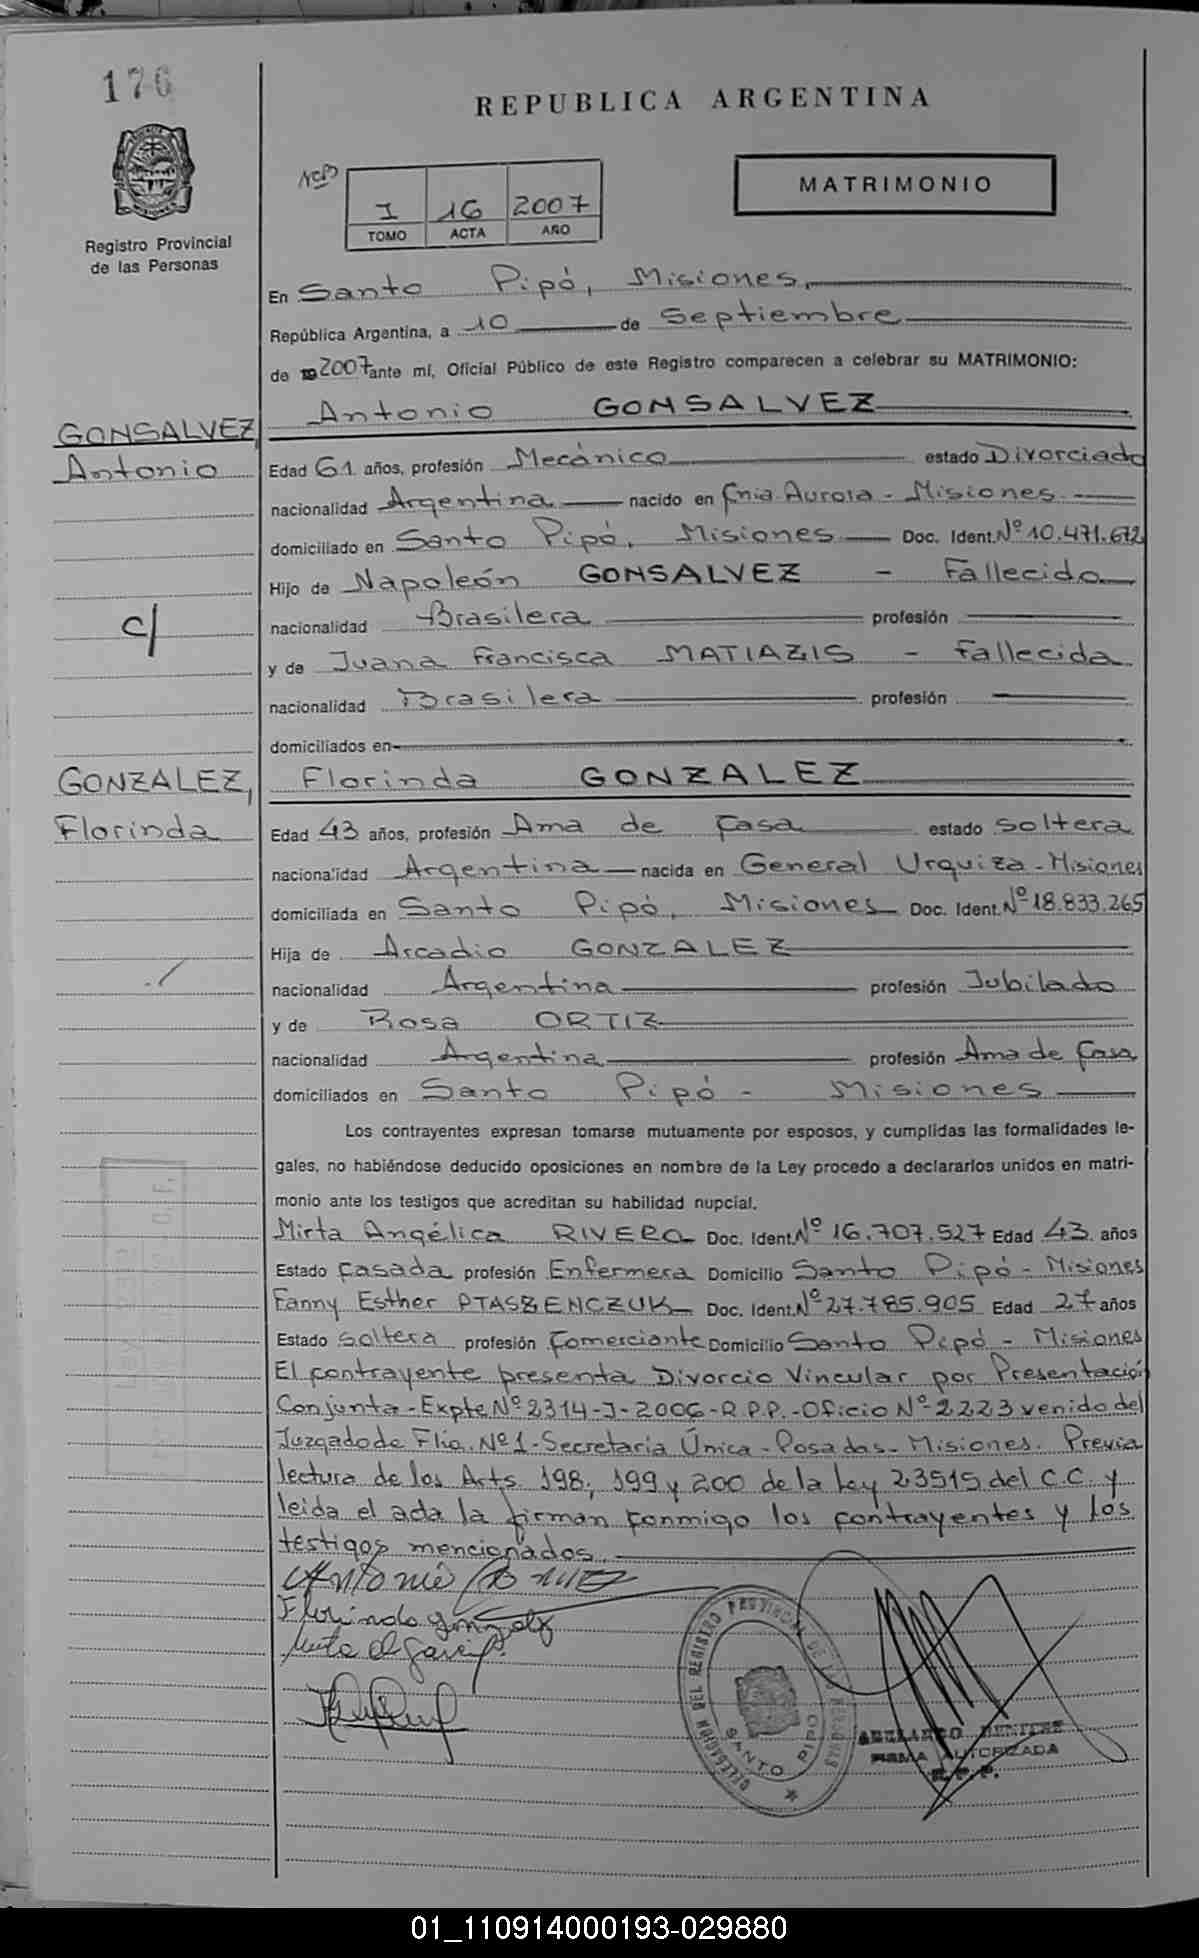 176
REPUBLICA ARGENTINA
MATRIMONIO
I 16 2007
TOMO ACTA AÑO
Registro Provincial
de las Personas
En Santo Pipó, Misiones,
República Argentina, a 10 de Septiembre
de 2007 ante mí, Oficial Público de este Registro comparecen a celebrar su MATRIMONIO:
Antonio GONSALVEZ
GONSALVEZ,
Antonio
Edad 61 años, profesión Mecánico estado Divorciado
nacionalidad Argentina nacido en Cnia. Aurora - Misiones
domiciliado en Santo Pipó, Misiones Doc. Ident. Nº 10.471.672
Hijo de Napoleón GONSALVEZ - Fallecido
nacionalidad Brasilera profesión
C/
y de Juana Francisca MATIAZIS - Fallecida
nacionalidad Brasilera profesión
domiciliados en
Florinda GONZALEZ
GONZALEZ,
Florinda
Edad 43 años, profesión Ama de Casa estado Soltera
nacionalidad Argentina nacida en General Urquiza - Misiones
domiciliada en Santo Pipó, Misiones Doc. Ident. Nº 18.833.265
Hija de Arcadio GONZALEZ
nacionalidad Argentina profesión Jubilado
y de Rosa ORTIZ
nacionalidad Argentina profesión Ama de Casa
domiciliados en Santo Pipó - Misiones
Los contrayentes expresan tomarse mutuamente por esposos, y cumplidas las formalidades le-
gales, no habiéndose deducido oposiciones en nombre de la Ley procedo a declararlos unidos en matri-
monio ante los testigos que acreditan su habilidad nupcial.
Mirta Angélica RIVERO Doc. Ident. Nº 16.707.527 Edad 43 años
Estado Casada profesión Enfermera Domicilio Santo Pipó - Misiones
Fanny Esther PTASZENCZUK Doc. Ident. Nº 27.785.905 Edad 27 años
Estado Soltera profesión Comerciante Domicilio Santo Pipó - Misiones
El contrayente presenta Divorcio Vincular por Presentación
Conjunta - Expte Nº 2314-J-2006-R.P.P. - Oficio Nº 2223 venido del
Juzgado de Flia. Nº 1 - Secretaria Única - Posadas - Misiones. Previa
lectura de los Arts. 198, 199 y 200 de la Ley 23515 del C.C. y
leida el acta la firman conmigo los contrayentes y los
testigos mencionados.
Florinda Gonzalez
DELEGACION DEL REGISTRO PROVINCIAL DE LAS PERSONAS
SANTO PIPO
ABELARDO BENITEZ
FIRMA AUTORIZADA
R.P.P.
01_110914000193-029880